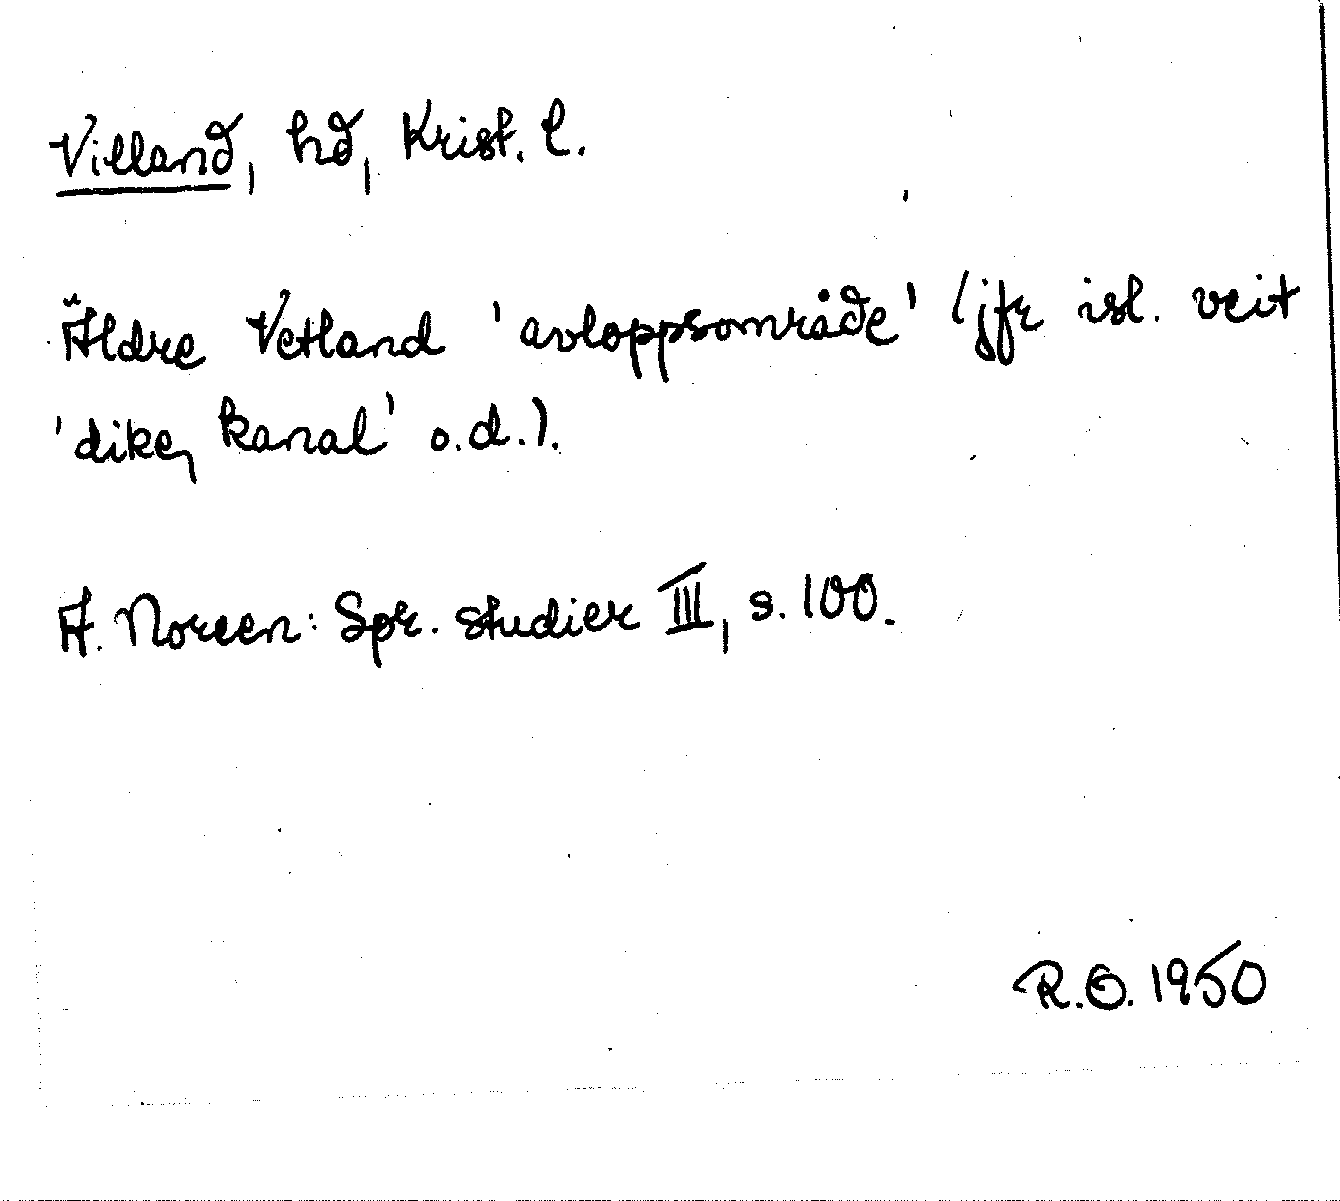 Villand, hd, Krist. l.
Äldre Vetland 'avloppsområde' (jfr isl. veit
'dike, kanal' o.d.).
A. Noreen: Spr. studier III, s. 100.
R.O. 1950